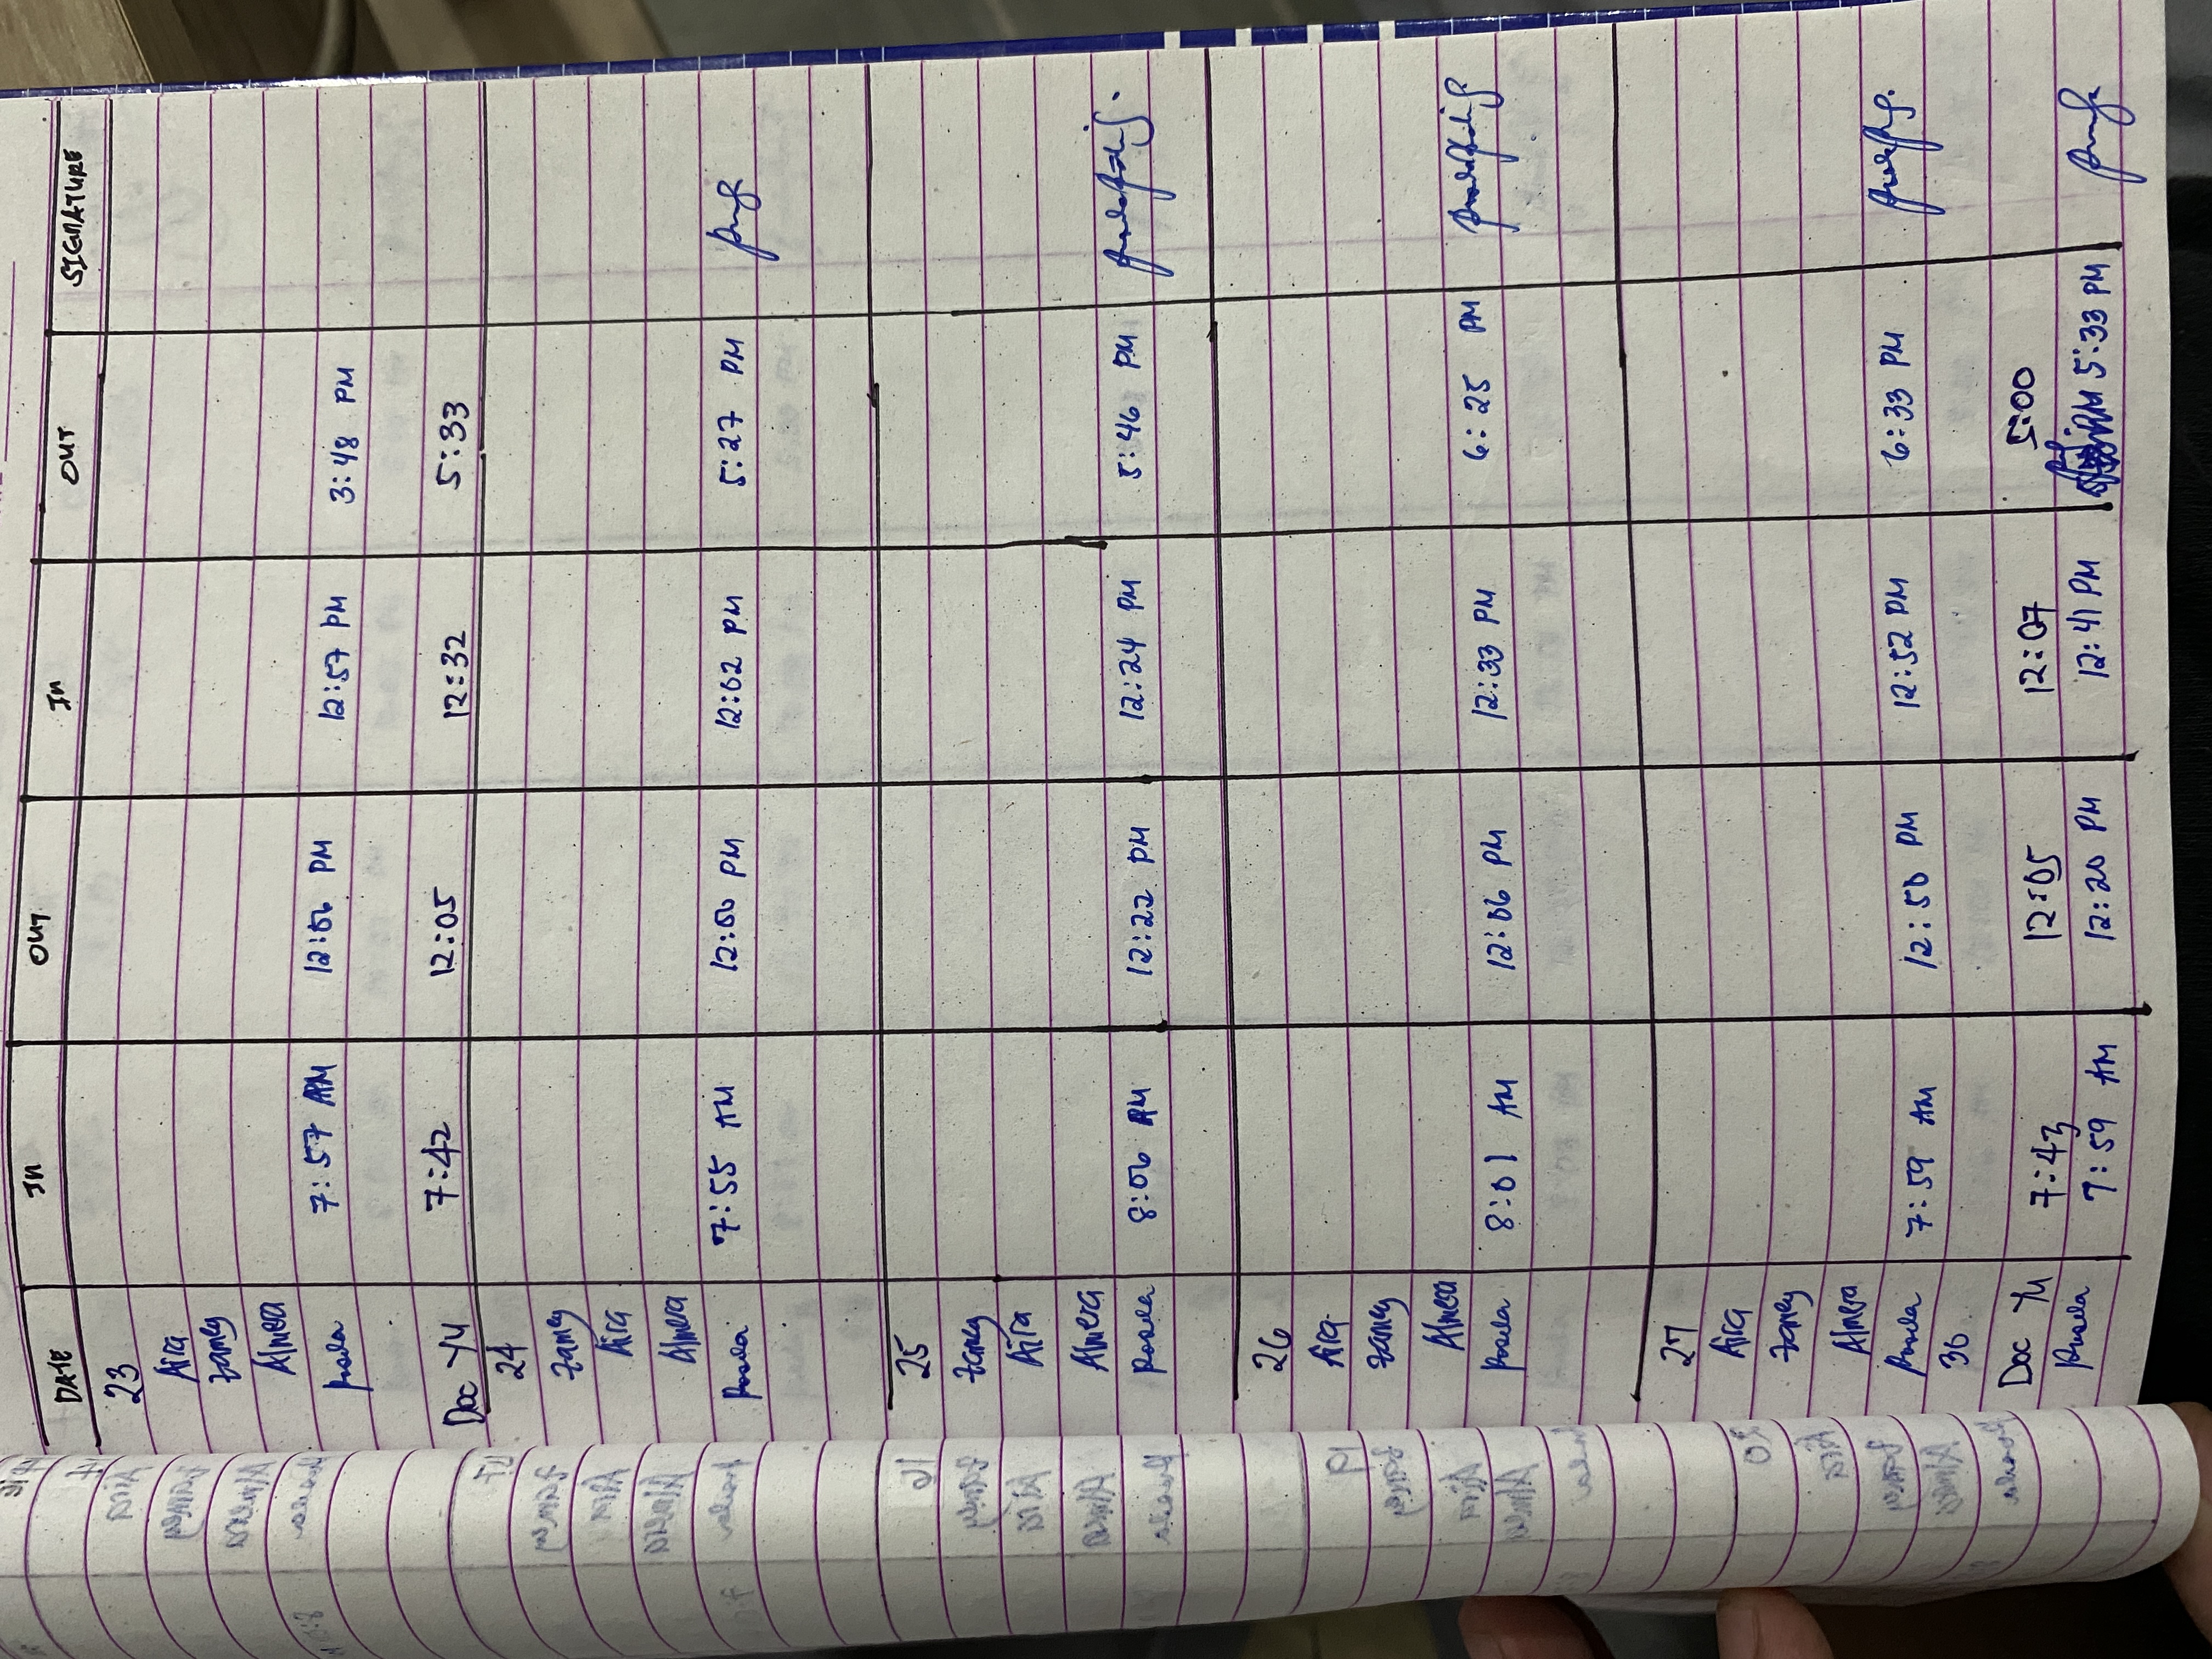 DATE IN OUT IN OUT SIGNATURE
23
Aira
Jamey
Almera
Paula 7:57 AM 12:00 PM 12:57 PM 3:48 PM
Doc Yu 7:42 12:05 12:32 5:33
24
Jamey
Aira
Almera
Paula 7:55 AM 12:00 PM 12:02 PM 5:27 PM
25
Jamey
Aira
Almera
Paula 8:00 AM 12:22 PM 12:24 PM 5:46 PM
26
Aira
Jamey
Almera
Paula 8:01 AM 12:06 PM 12:33 PM 6:25 PM
27
Aira
Jamey
Almera
Paula 7:59 AM 12:50 PM 12:52 PM 6:33 PM
30
Doc Yu 7:43 12:05 12:07 5:00
Paula 7:59 AM 12:20 PM 12:41 PM 5:33 PM